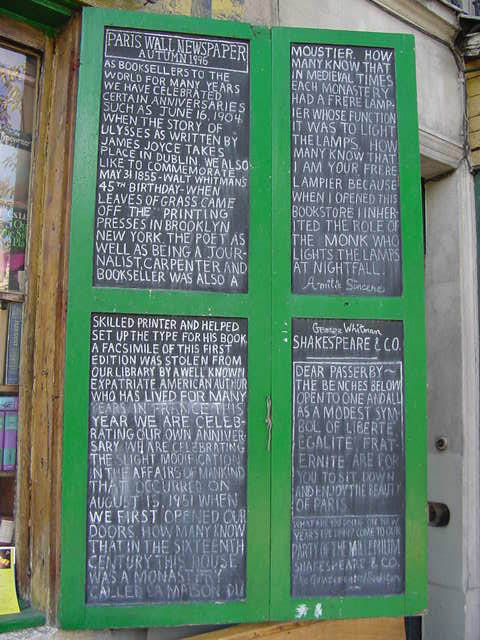 PARIS WALL NEWSPAPER
AUTUMN 1996
AS BOOKSELLERS TO THE
WORLD FOR MANY YEARS
WE HAVE CELEBRATED
CERTAIN ANNIVERSARIES
SUCH AS JUNE 16, 1904
WHEN THE STORY OF
ULYSSES AS WRITTEN BY
JAMES JOYCE TAKES
PLACE IN DUBLIN. WE ALSO
LIKE TO COMMEMORATE
MAY 31 1855 - WALT WHITMAN'S
45TH BIRTHDAY - WHEN
LEAVES OF GRASS CAME
OFF THE PRINTING
PRESSES IN BROOKLYN
NEW YORK THE POET AS
WELL AS BEING A JOUR-
NALIST, CARPENTER AND
BOOKSELLER WAS ALSO A
SKILLED PRINTER AND HELPED
SET UP THE TYPE FOR HIS BOOK
A FACSIMILE OF THIS FIRST
EDITION WAS STOLEN FROM
OUR LIBRARY BY A WELL KNOWN
EXPATRIATE AMERICAN AUTHOR
WHO HAS LIVED FOR MANY
YEARS IN FRANCE THIS
YEAR WE ARE CELEB-
RATING OUR OWN ANNIVER-
SARY. WE ARE CELEBRATING
THE SLIGHT MODIFICATION
IN THE AFFAIRS OF MANKIND
THAT OCCURRED ON
AUGUST 15, 1951 WHEN
WE FIRST OPENED OUR
DOORS. HOW MANY KNOW
THAT IN THE SIXTEENTH
CENTURY THIS HOUSE
WAS A MONASTERY
CALLED LA MAISON DU
MOUSTIER. HOW
MANY KNOW THAT
IN MEDIEVAL TIMES
EACH MONASTERY
HAD A FRERE LAMP-
IER WHOSE FUNCTION
IT WAS TO LIGHT
THE LAMPS. HOW
MANY KNOW THAT
I AM YOUR FRERE
LAMPIER BECAUSE
WHEN I OPENED THIS
BOOKSTORE I INHER-
ITED THE ROLE OF
THE MONK WHO
LIGHTS THE LAMPS
AT NIGHTFALL.
Amitié Sincere
George Whitman
SHAKESPEARE & CO.
DEAR PASSERBY ~
THE BENCHES BELOW
OPEN TO ONE AND ALL
AS A MODEST SYM
BOL OF LIBERTE
EGALITE FRAT-
ERNITE ARE FOR
YOU TO SIT DOWN
AND ENJOY THE BEAUTY
OF PARIS
WHAT ARE YOU DOING ON NEW
YEARS EVE COME TO OUR
PARTY OF THE MILLENIUM
SHAKESPEARE & CO.